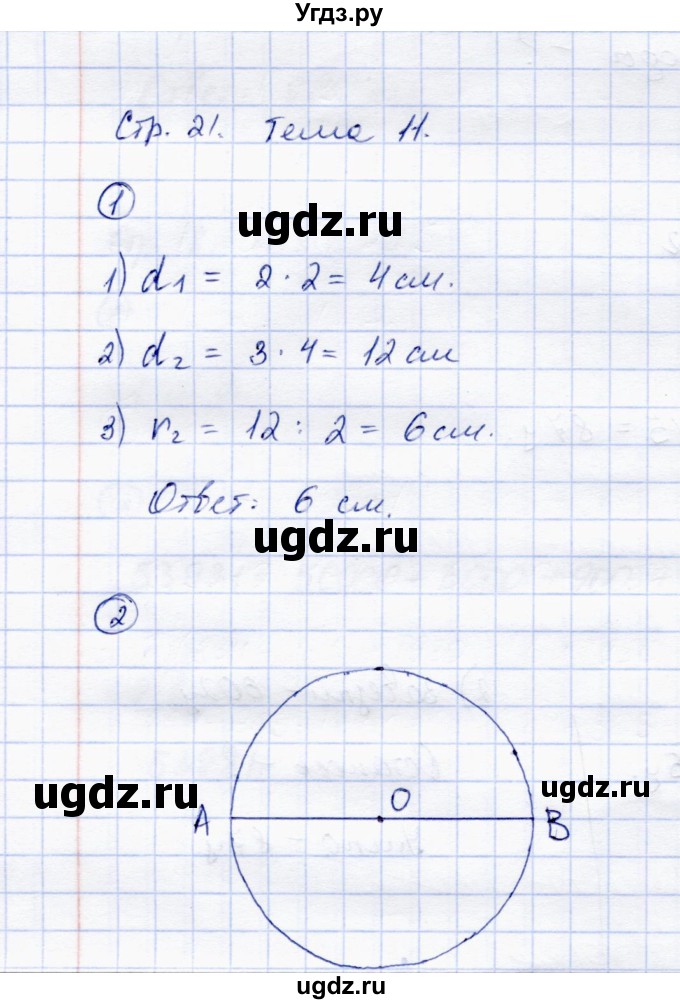 Угдз.ру
Стр. 21. Тема 11.
1
ugdz.ru
1) d1 = 2 · 2 = 4 см.
2) d2 = 3 · 4 = 12 см
3) r2 = 12 : 2 = 6 см.
Ответ: 6 см.
ugdz.ru
2
ugdz.ru
ugdz.ru
A O B
ugdz.ru